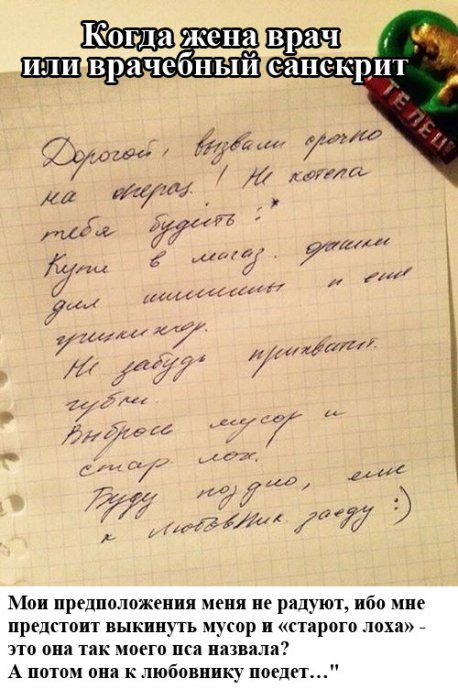 Когда жена врач
или врачебный санскрит
ТЕЛЕЦ
Дорогой, вызвали срочно
на операц.! Не хотела
тебя будить :*
Купи в магаз.
для и еще
Не забудь прихватит.
губки.
Выброси мусор и
стар. лох.
Буду поздно, еще
к любовник заеду :)
Мои предположения меня не радуют, ибо мне
предстоит выкинуть мусор и «старого лоха» -
это она так моего пса назвала?
А потом она к любовнику поедет…"